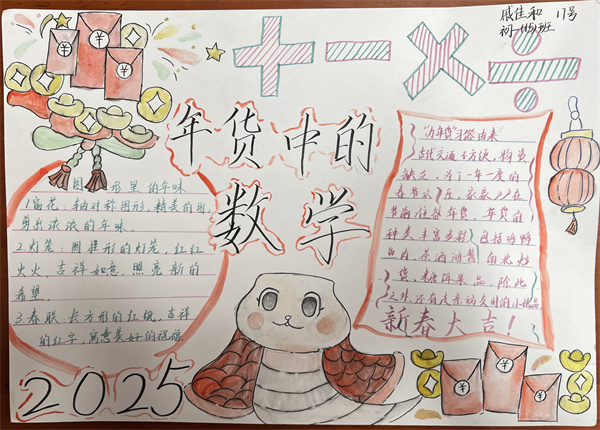 戚佳和 17号
初一(15)班
年货中的
数学
图形里的年味
1.窗花：轴对称图形，精美的图，
剪出浓浓的年味。
2.灯笼：圆握形的灯笼，红红
火火，吉祥如意，照亮新的
希望。
3.春联：长方形的红纸，吉祥
的红字，寓意美好的祝福
"办年货"习俗由来
古代交通不方便，物资
缺乏，为了一年一度的
春节
年货，年货的
种类丰富多彩，包括鸡鸭
鱼肉、茶酒油酱、南北炒
货、糖饵果品，除此
之外，还有走亲访友时的小礼品
新春大吉！
2025
¥
¥
¥
¥
¥
¥